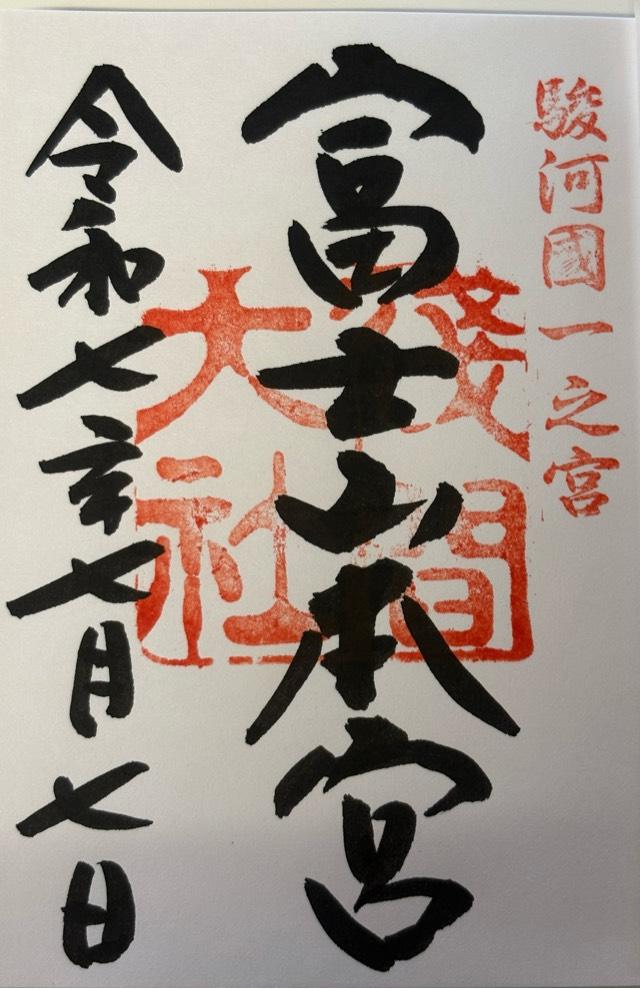 駿河國一之宮
富士山本宮
淺間
大社
令和七年七月七日